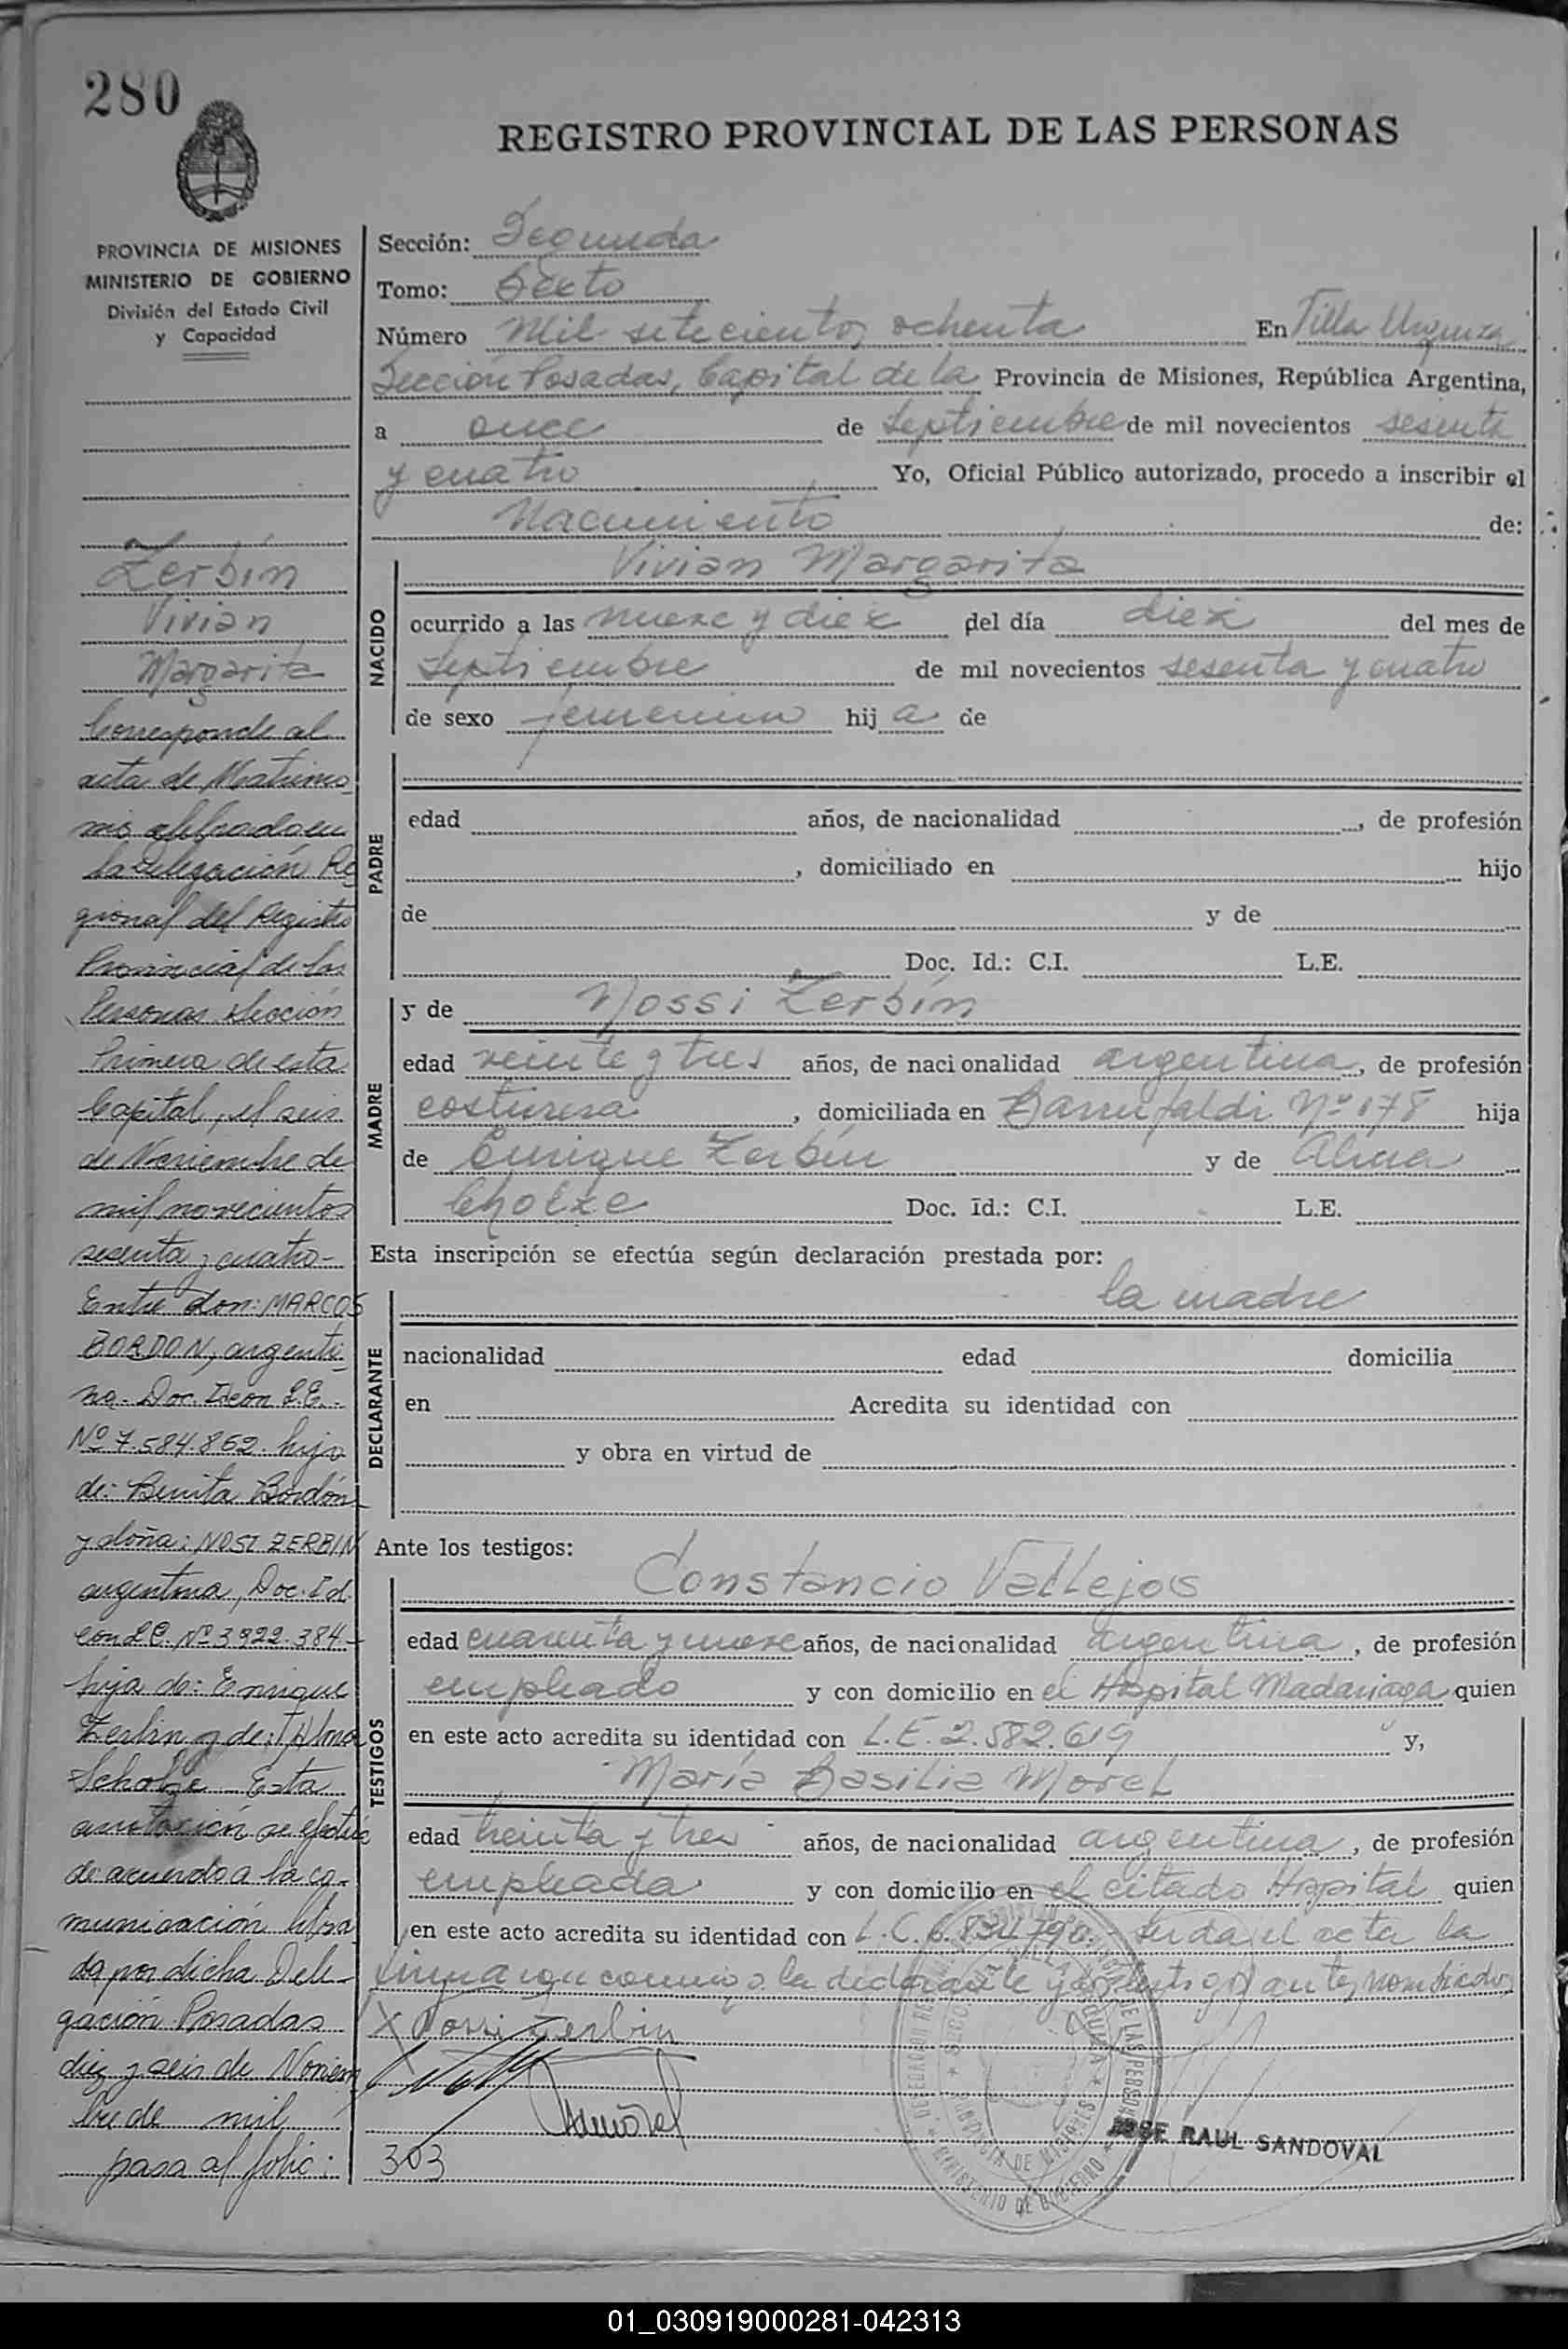 280
REGISTRO PROVINCIAL DE LAS PERSONAS
PROVINCIA DE MISIONES
MINISTERIO DE GOBIERNO
División del Estado Civil
y Capacidad
Zerbín
Vivian
Margarita
Corresponde al
acta de Matrimo
nio en
la Delegación Re
gional del Registro
Provincial de las
Personas Sección
Primera de esta
Capital, el seis
de Noviembre de
mil novecientos
sesenta y cuatro-
Entre don: MARCOS
BORDON, argenti
no- Doc. Id con L.E.-
Nº 7.584.862. hijo
de: Benita Bordón
y doña: NOSI ZERBIN
argentina, Doc. Id.
con L.C. Nº 3922.384-
hija de: Enrique
Zerbin y de: Alma
Scholze Esta
anotación se efectua
de acuerdo a la co-
municación libra
da por dicha Dele-
gación Posadas
diez y seis de Noviem
bre de mil
pasa al folio:
Sección: Segunda
Tomo: Sexto
Número Mil setecientos ochenta En Villa Urquiza
Sección Posadas, Capital de la Provincia de Misiones, República Argentina,
a once de Septiembre de mil novecientos sesenta
y cuatro Yo, Oficial Público autorizado, procedo a inscribir el
Nacimiento de:
NACIDO
Vivian Margarita
ocurrido a las nueve y diez del día diez del mes de
Septiembre de mil novecientos sesenta y cuatro
de sexo femenino hij a de
PADRE
edad años, de nacionalidad , de profesión
, domiciliado en hijo
de y de
Doc. Id.: C.I. L.E.
MADRE
y de Nossi Zerbín
edad veinte y tres años, de nacionalidad argentina, de profesión
costurera, domiciliada en Barrufaldi Nº 178 hija
de Enrique Zerbín y de Alma
Cholze Doc. Id.: C.I. L.E.
Esta inscripción se efectúa según declaración prestada por:
DECLARANTE
la madre
nacionalidad edad domicilia
en Acredita su identidad con
y obra en virtud de
Ante los testigos:
TESTIGOS
Constancio Vallejos
edad cuarenta y nueve años, de nacionalidad argentina, de profesión
empleado y con domicilio en el Hospital Madariaga quien
en este acto acredita su identidad con L.E. 2.582.619 y,
María Basilia Morel
edad treinta y tres años, de nacionalidad argentina, de profesión
empleada y con domicilio en el citado Hospital quien
en este acto acredita su identidad con L.C. 6.831.790.- Leída el acta la
firman conmigo la declarante y los testigos antes nombrados
X Nossi Zerbin
AMorel
JOSE RAUL SANDOVAL
303
01_030919000281-042313